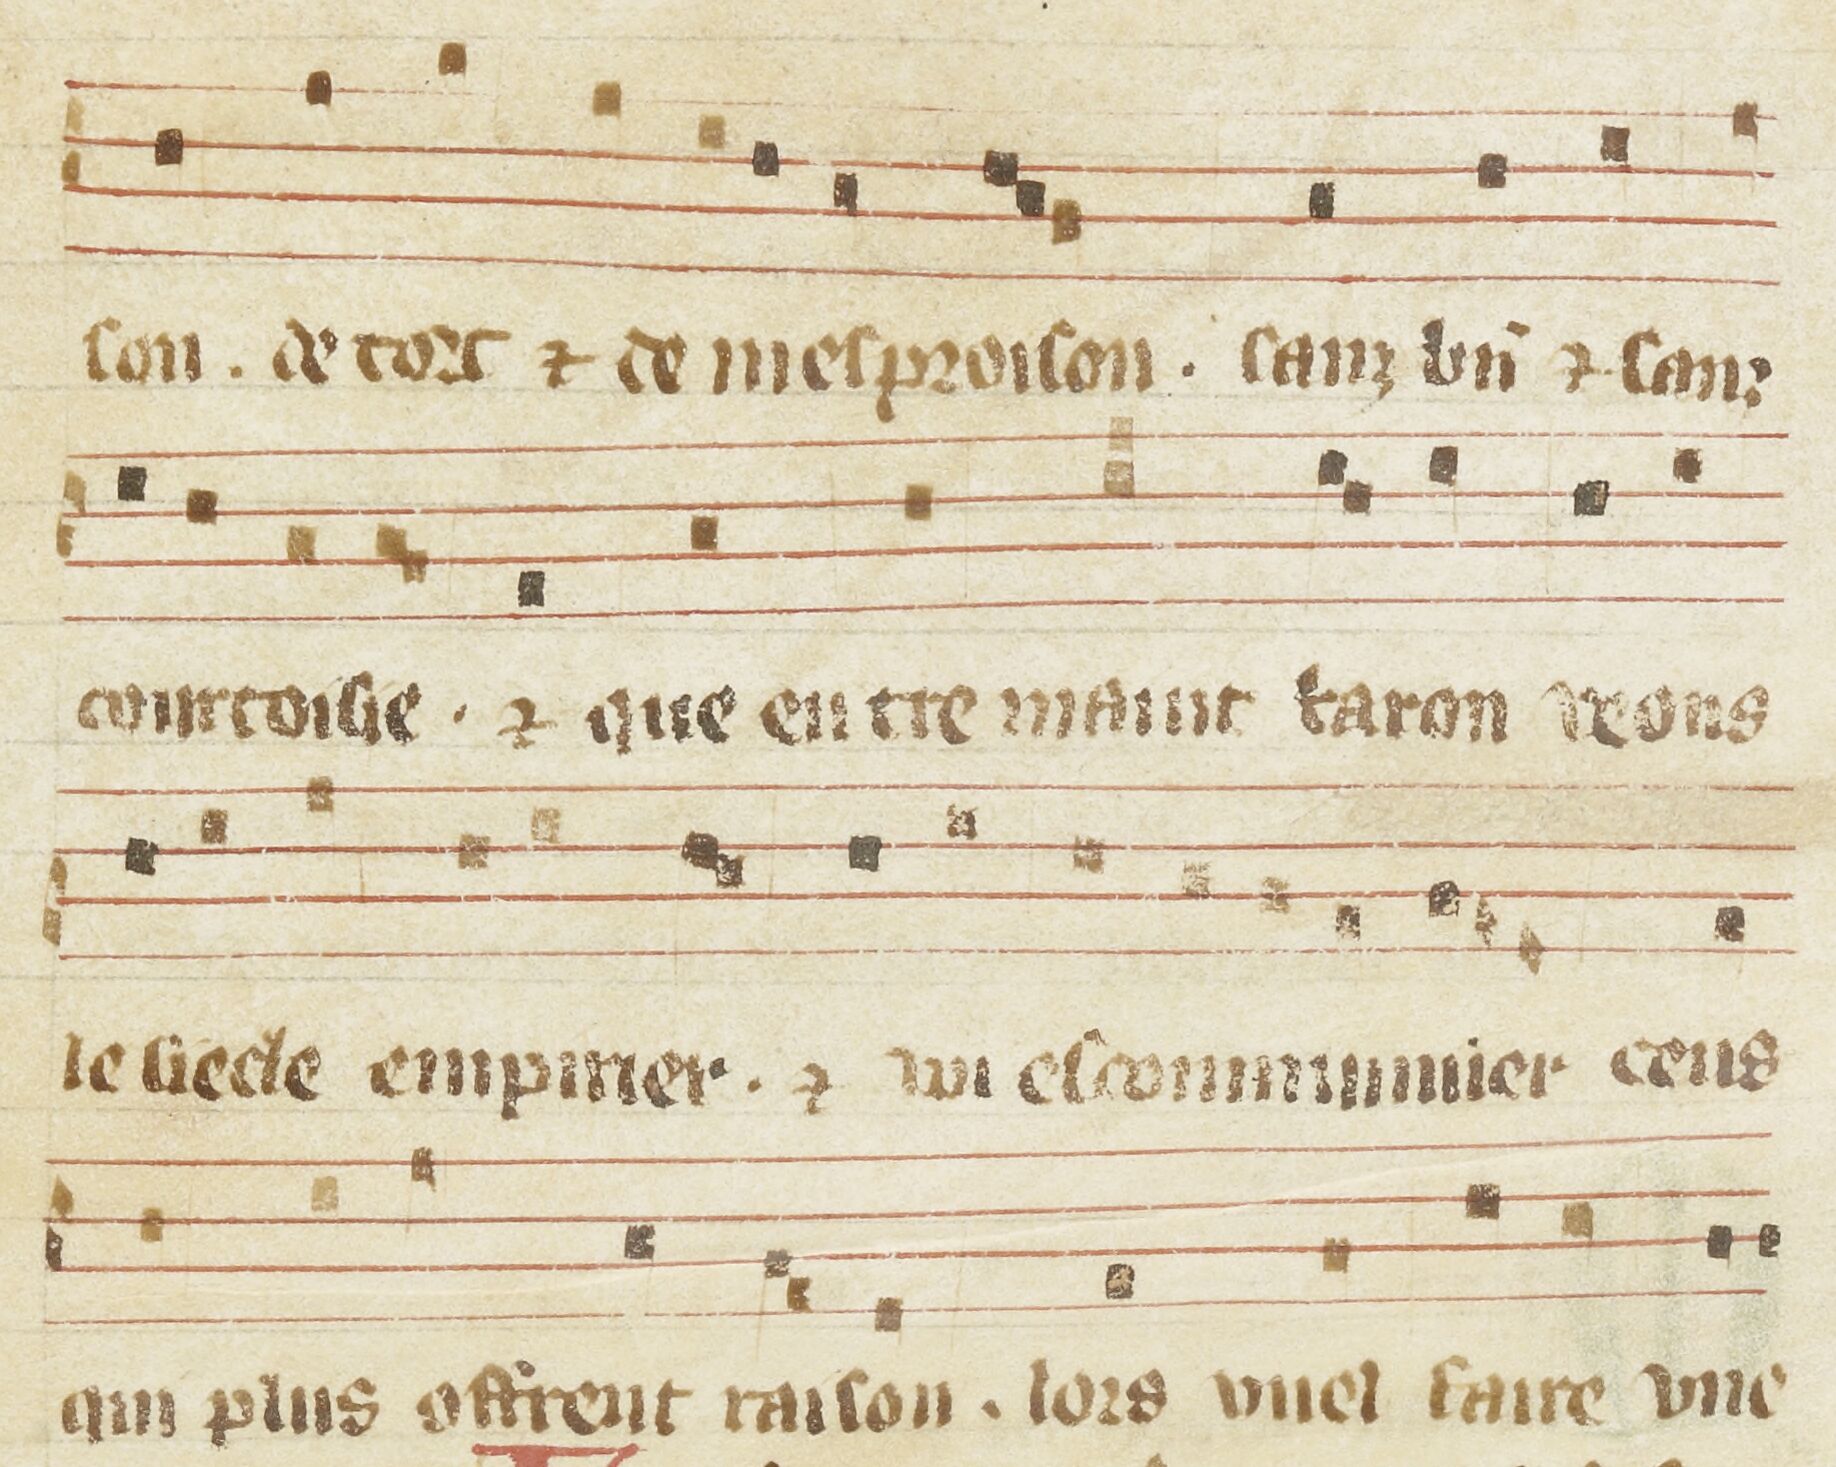 son . de tort ⁊ de mesproison . sanz vin̄ ⁊ sanz
courtoisie . ⁊ que entre maint baron veons
le siecle empirier . ⁊ voi escommunnier ceus
qui plus offrent raison . lors vuel faire vne